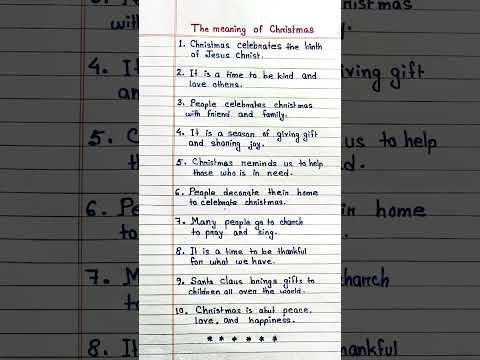 The meaning of Christmas
1. Christmas celebrates the birth
of Jesus Christ.
2. It is a time to be kind and
love others.
3. People celebrates christmas
with friend and family.
4. It is a season of giving gift
and sharing joy.
5. Christmas reminds us to help
those who is in need.
6. People decorate their home
to celebrate christmas.
7. Many people go to church
to pray and sing.
8. It is a time to be thankful
for what we have.
9. Santa Claus brings gifts to
children all over the world.
10. Christmas is abut peace,
love, and happiness.